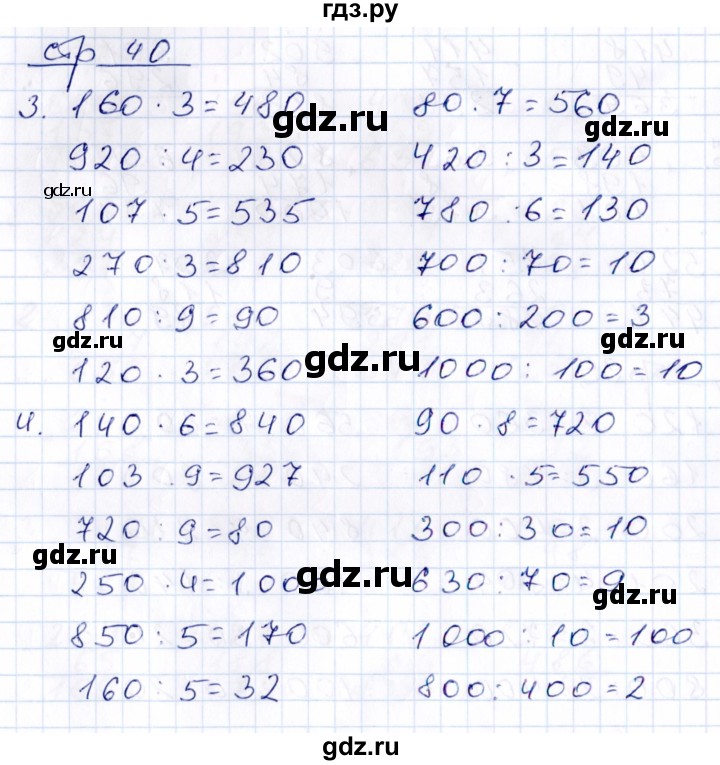 гдз.ру
стр 40
3. 160 · 3 = 480 80 · 7 = 560
gdz.ru
gdz.ru
920 : 4 = 230 420 : 3 = 140
gdz.ru
107 · 5 = 535 780 : 6 = 130
gdz.ru
270 · 3 = 810 700 : 70 = 10
810 : 9 = 90 600 : 200 = 3
gdz.ru
gdz.ru
gdz.ru
120 · 3 = 360 1000 : 100 = 10
4. 140 · 6 = 840 90 · 8 = 720
103 · 9 = 927 110 · 5 = 550
720 : 9 = 80 300 : 30 = 10
gdz.ru
gdz.ru
250 · 4 = 1000 630 : 70 = 9
gdz.ru
850 : 5 = 170 1000 : 10 = 100
160 : 5 = 32 800 : 400 = 2
gdz.ru
gdz.ru